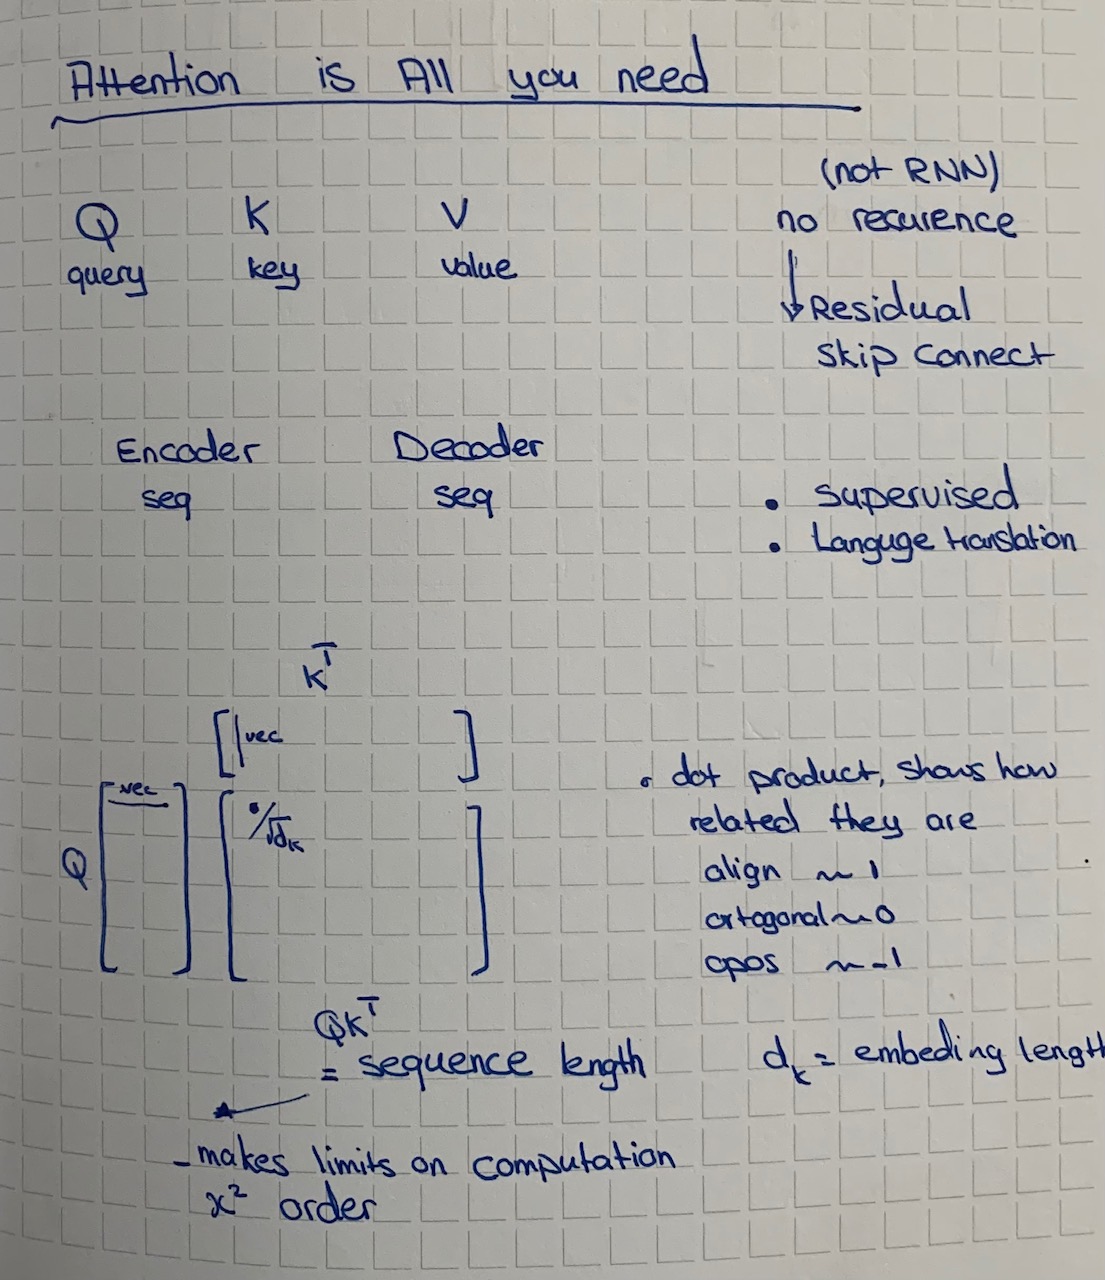 Attention is All you need
(not RNN)
no recurence
Residual
Skip Connect
Q K V
query key value
Encoder Decoder
seq seq
• Supervised
• Languge translation
K^T
vec
vec
Q
•/√dk
• dot product, shows how
related they are
align ~ 1
ortogonal ~ 0
opos ~ -1
QK^T
= sequence length
dk = embeding length
- makes limits on computation
x² order